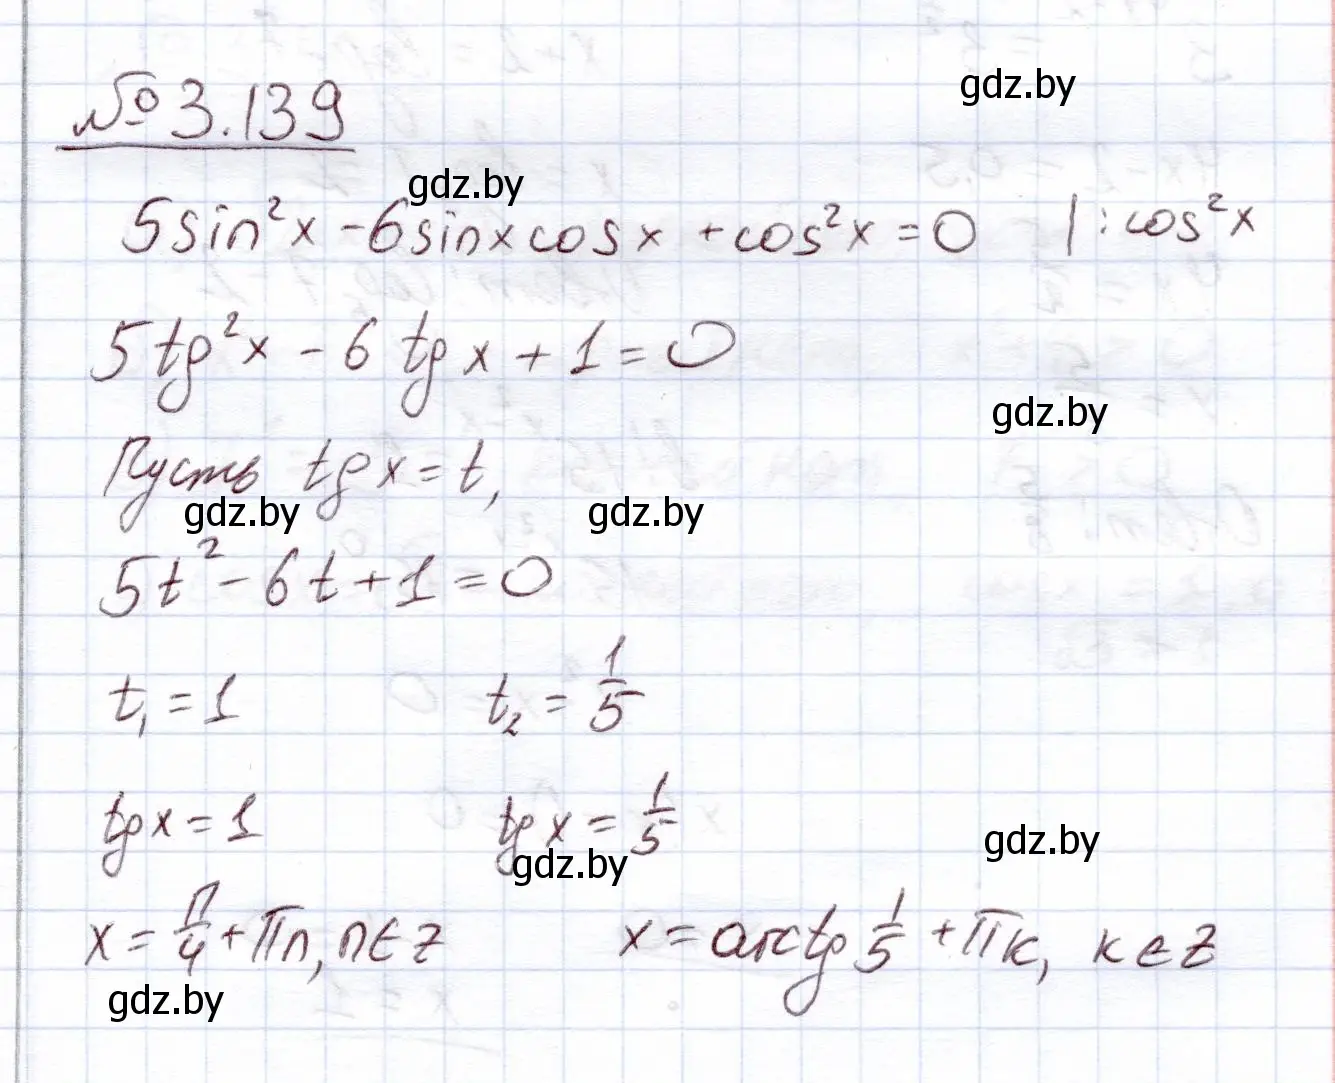 gdz.by
№ 3.139
gdz.by
5sin²x - 6sinxcosx + cos²x = 0 | : cos²x
5tg²x - 6tgx + 1 = 0
gdz.by
Пусть tgx = t,
gdz.by gdz.by
5t² - 6t + 1 = 0
t₁ = 1 t₂ = 1/5
tgx = 1 tgx = 1/5
gdz.by gdz.by
x = π/4 + πn, n∈z x = arctg 1/5 + πk, k∈z
gdz.by